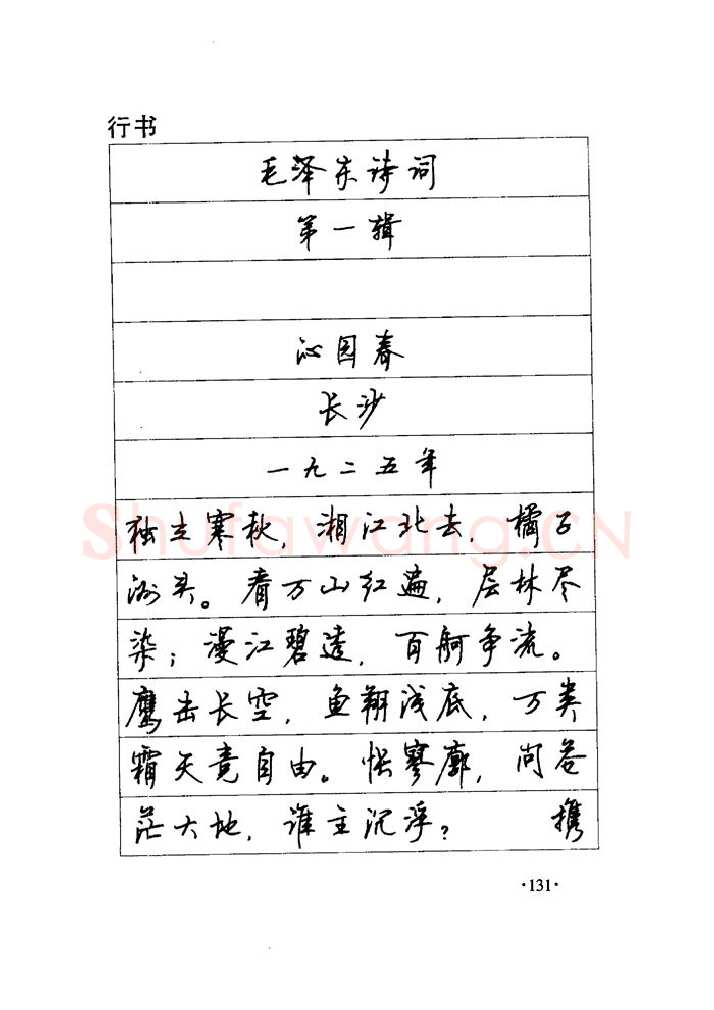 行书
毛泽东诗词
第一辑
沁园春
长沙
一九二五年
独立寒秋，湘江北去，橘子
洲头。看万山红遍，层林尽
染；漫江碧透，百舸争流。
鹰击长空，鱼翔浅底，万类
霜天竞自由。怅寥廓，问苍
茫大地，谁主沉浮？ 携
·131·
Shufawang.CN